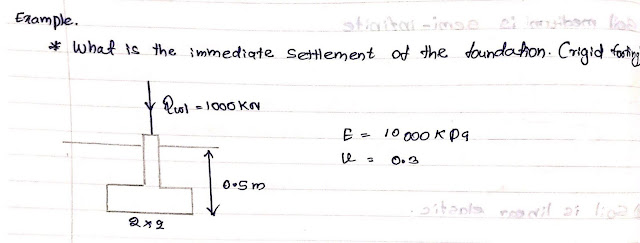 Example.
* What is the immediate settlement of the foundation. (rigid footing)
Qwl = 1000 KN
E = 10 000 KPa
μ = 0.3
0.5m
2x2